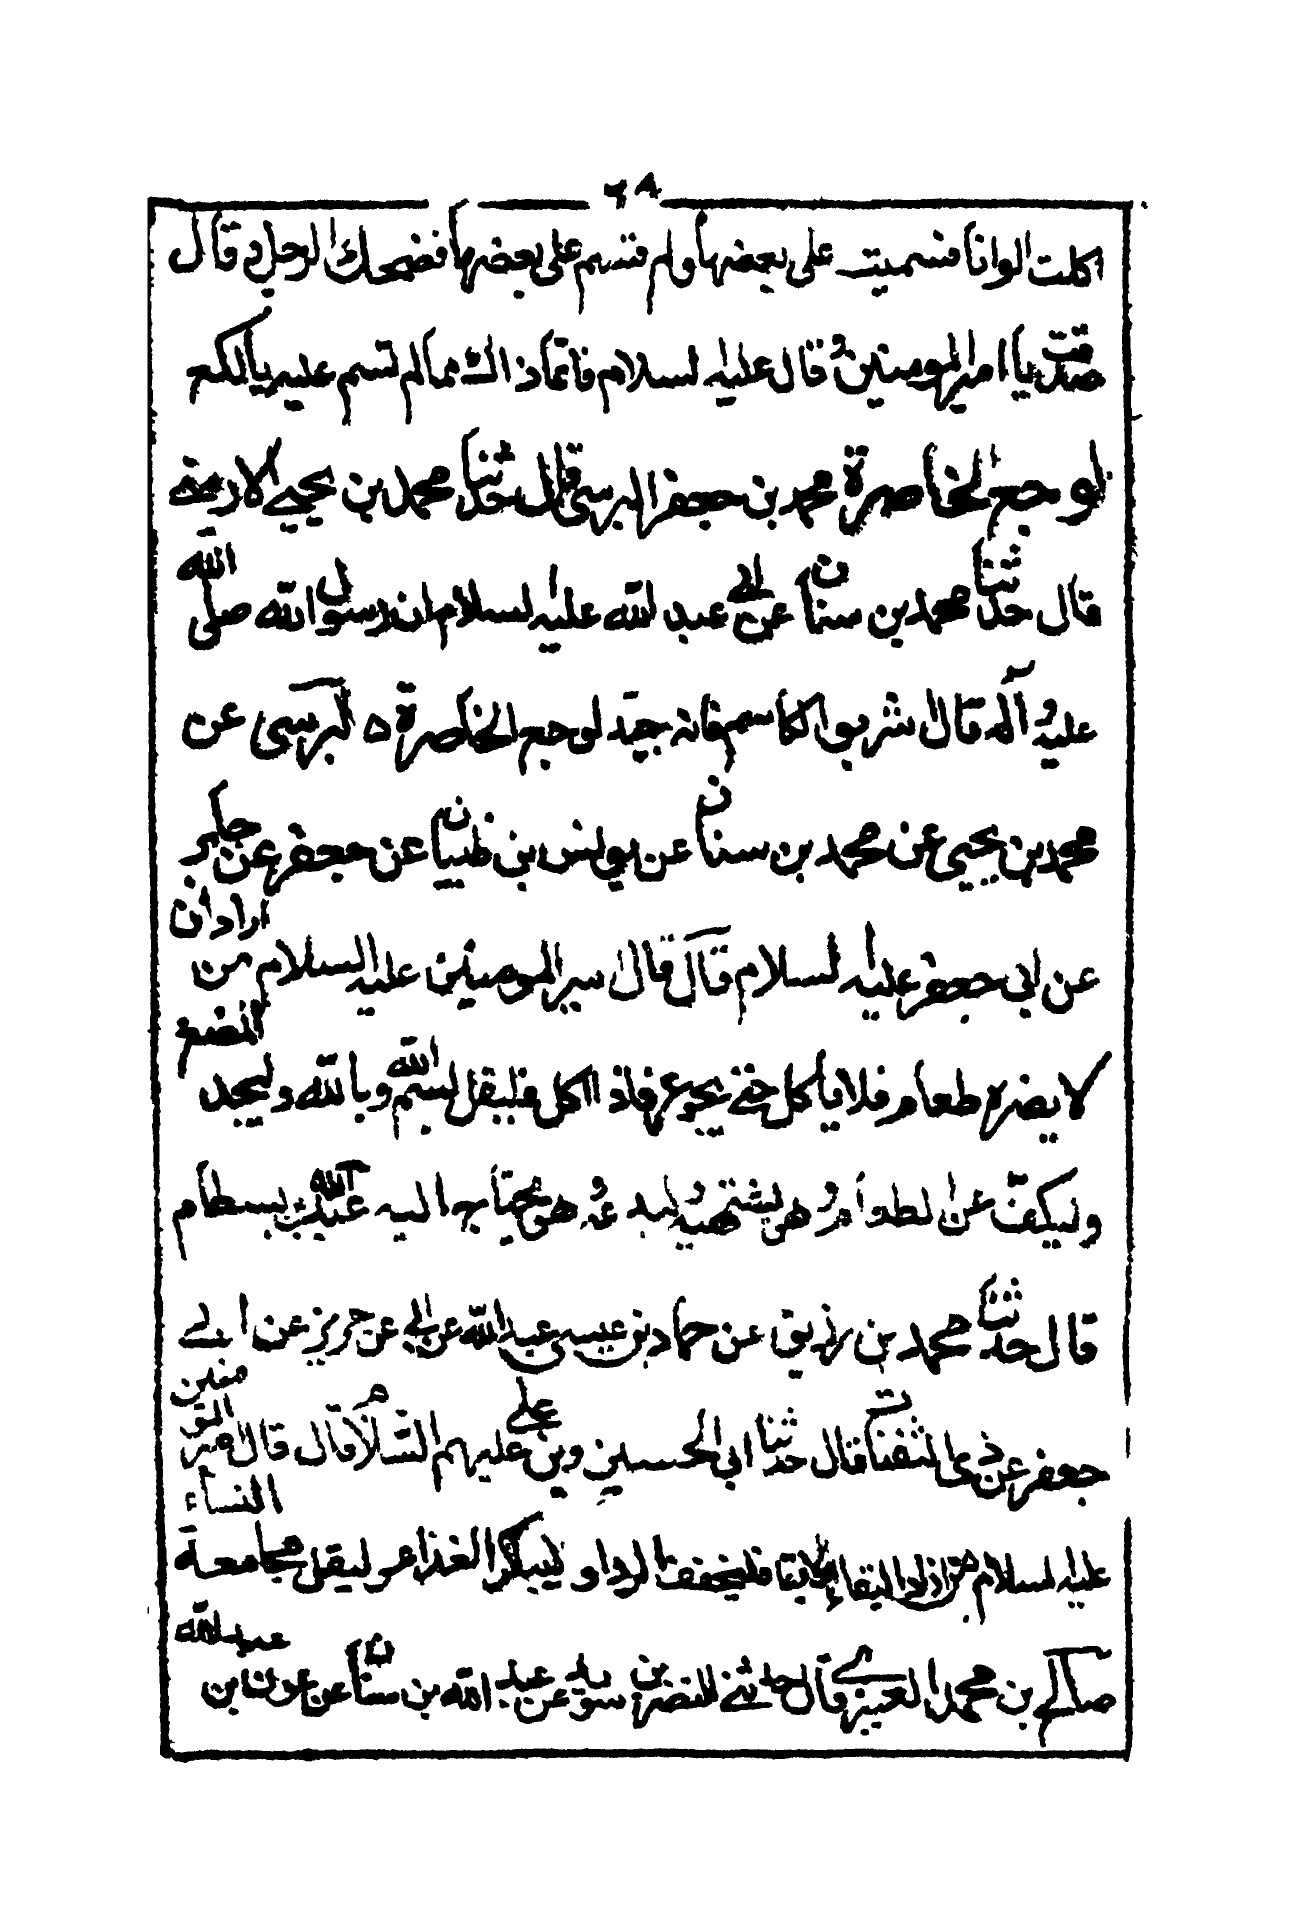 ٢٨
اكلت الوانا فسميت على بعضها ولم تسم على بعضها فضحك الرجل و قال
صدقت يا امير المومنين قال عليه السلام فانما ذاك مما لم تسم عليه يا لكع
لوجع الخاصرة محمد بن جعفر البرسى قال حدثنا محمد بن يحيى الارمنى
قال حدثنا محمد بن سنان عن ابى عبد الله عليه السلام ان رسول الله صلى الله
عليه وآله قال اشربوا الكاسم فانه جيد لوجع الخاصرة ه البرسى عن
محمد بن يحيى عن محمد بن سنان عن يونس بن ظبيان عن جعفر عن جابر
عن ابى جعفر عليه السلام قال قال امير المومنين عليه السلام من اراد ان
لا يضره طعام فلا ياكل حتى يجوع فاذا اكل فليقل بسم الله وبالله وليجد المضغ
وليكف عن الطعام و هو يشتهيه وليدعه و هو يحتاج اليه عبد الله بن بسطام
قال حدثنا محمد بن رزيق عن حماد بن عيسى عن حريز عن ابى عبد الله
جعفر عن ابى الحسين بن على عليهم السلام قال قال امير المومنين
عليه السلام من اراد البقاء ولا بقاء فليخفف الرداء و ليبكر الغذاء و ليقل مجامعة النساء
صالح بن محمد العنبرى قال حدثنى النضر بن سويد عن عبد الله بن سنان عن عون بن عبد الله